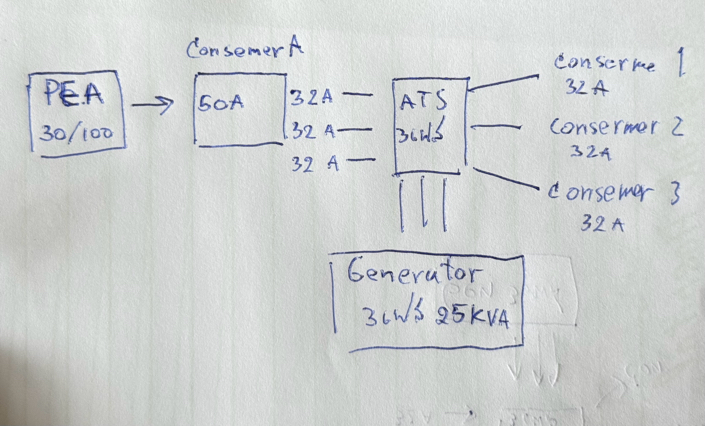 Consemer A
PEA
30/100
50A
32A
32A
32 A
ATS
3เฟส
Conserme 1
32A
Consermer 2
32A
Consemer 3
32A
Generator
3เฟส 25KVA